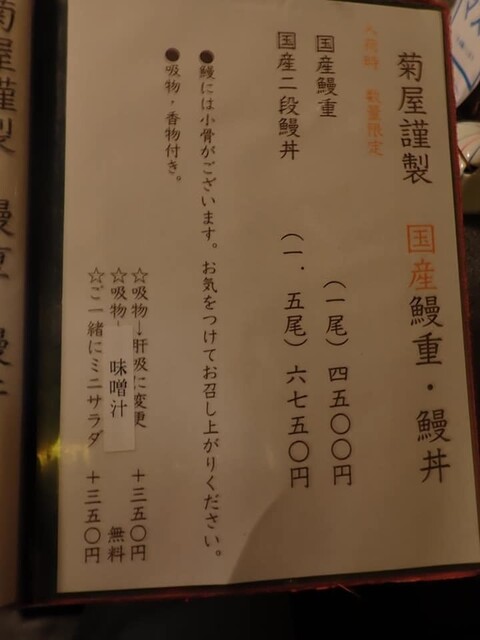 菊屋謹製 国産鰻重・鰻丼
入荷時 数量限定
国産鰻重 (一尾) 四五〇〇円
国産二段鰻丼 (一.五尾) 六七五〇円
●鰻には小骨がございます。お気をつけてお召し上がりください。
●吸物・香物付き。
☆吸物→肝吸に変更 +三五〇円
☆吸物→味噌汁 無料
☆ご一緒にミニサラダ +三五〇円